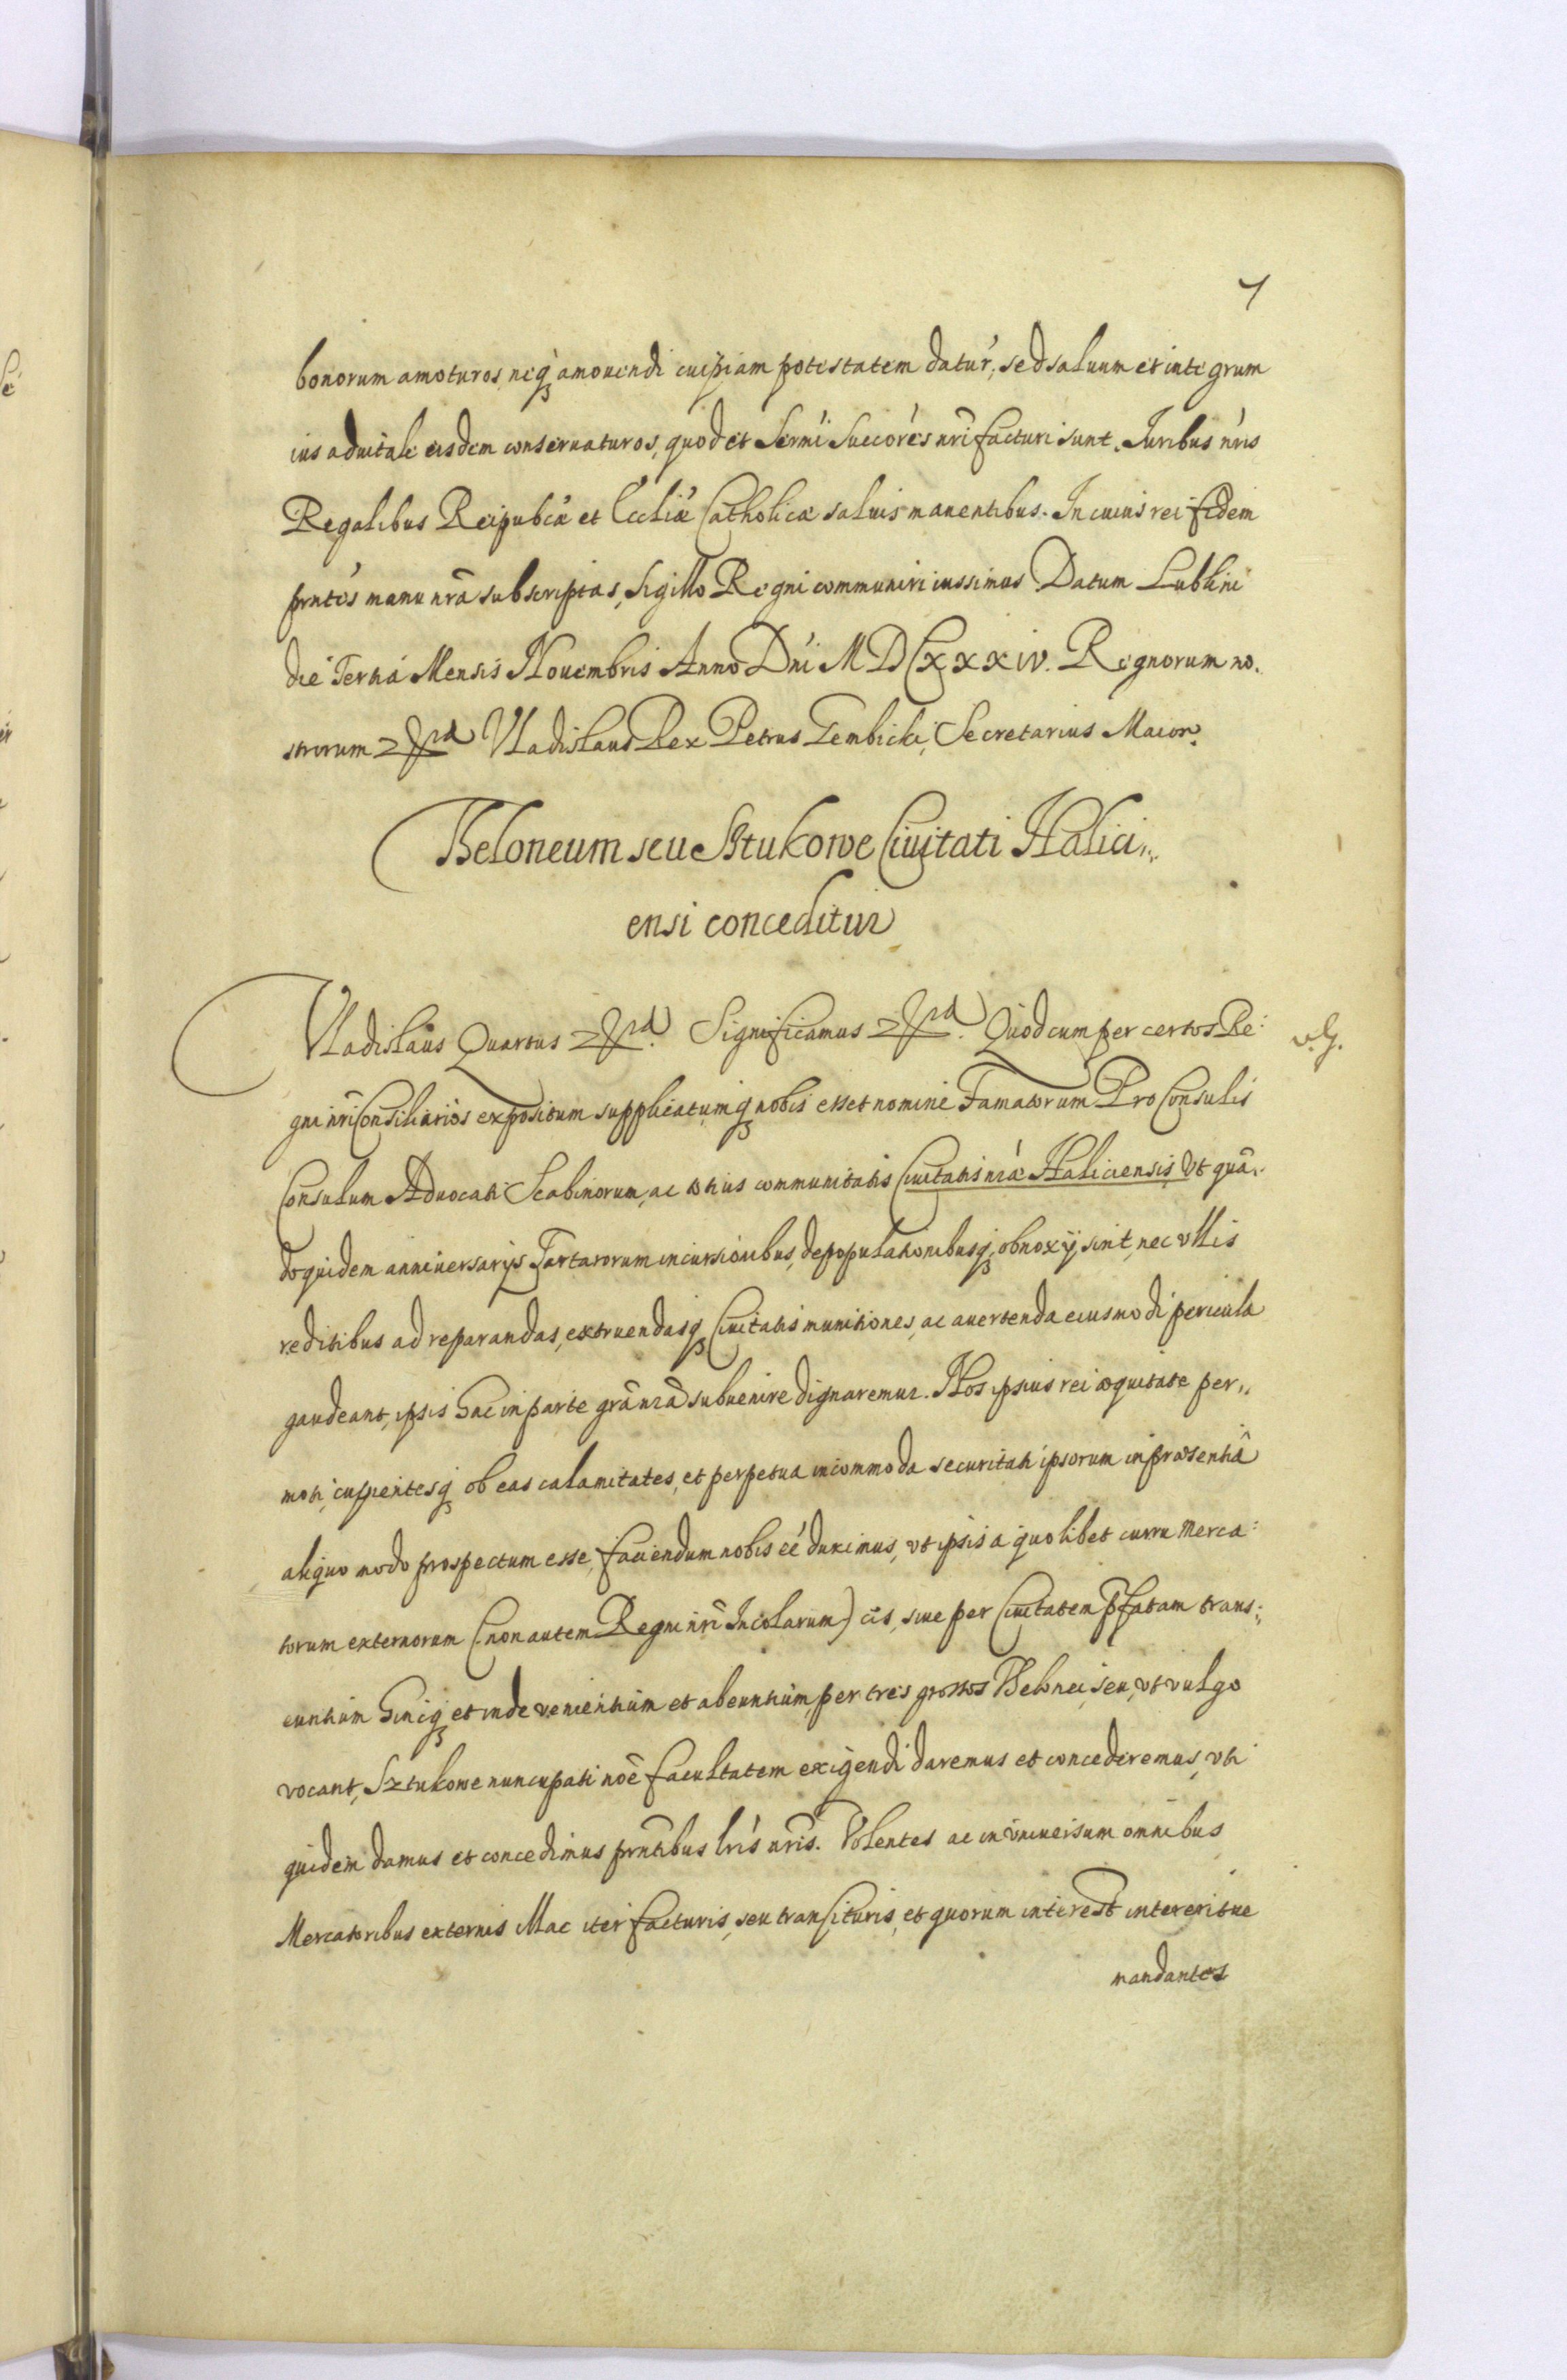 7
bonorum amoturos, neq₃ amouendi cuipiam potestatem datur̃, sed saluum et integrum
ius aduitale eisdem conseruaturos, quod et Sermi Succores nr̃i facturi sunt. Iuribus nr̃is
Regalibus Reipubcæ et Eccliæ Catholicæ saluis manentibus. In cuius rei fidem
prntes manu nrã subscriptas, Sigillo Regni communiri iussimus Datum Lublini
die Tertiá Mensis Nouembris Anno Dni MDCXXXIV. Regnorum no.
strorum Vladislaus Rex Petrus Gembicki, Secretarius Maior.
Theloneum seu Sztukowe Ciuitati Halici„
ensi conceditur
Vladislaus Quartus Significamus Quod cum per certos Re: v. g.
gni nr̃i Consiliarios expositum supplicatumq₃ nobis esset nomine Famatorum ProConsulis
Consulum Aduocati Scabinorum, ac totius communitatis Ciuitatis nræ Haliciensis, Vt quã„
doquidem anniuersarijs Tartarorum incursionibus, depopulationibusq₃ obnoxij sint, nec vllis
reditibus ad reparandas, extruendasq₃ Ciuitatis munitiones, ac auertenda eiusmodi pericula
gaudeant, ipsis hac in parte grã nrã subuenire dignaremur. Nos ipsius rei æquitate per„
moti, cupientesq₃ ob eas calamitates, et perpetua incommoda securitati ipsorum in præsentiâ
aliquo modo prospectum esse, faciendum nobis eé duximus, vt ipsis a quolibet curru Merca:
torum externorum (non autem Regni nr̃i Incolarum) cis, siue per Ciuitatem p̃fatam trans:,
euntium hincq₃ et inde venientium et abeuntium, per tres grossos Thelonei, seu, vt vulgo
vocant, Sztukowe nuncupati noẽ facultatem exigendi daremus et concederemus, vti
quidem damus et concedimus prntibus lris nris. Volentes ac in vniuersum omnibus
Mercatoribus externis illac iter facturis, seu transituris, et quorum interest intereritue
mandantes